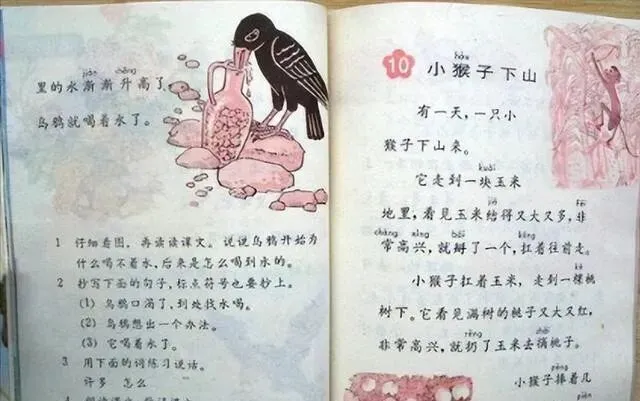 jiàn shēng
里的水渐渐升高了
乌鸦就喝着水了。
1 仔细看图，再读读课文。说说乌鸦开始为
什么喝不着水，后来是怎么喝到水的。
2 抄写下面的句子，标点符号也要抄上。
(1) 乌鸦口渴了，到处找水喝。
(2) 乌鸦想出一个办法。
(3) 它喝着水了。
3 用下面的词练习说话。
许多 怎么
hóu
10 小猴子下山
有一天，一只小
猴子下山来。
kuài
它走到一块玉米
jiē fēi
地里，看见玉米结得又大又多，非
cháng xìng bāi káng
常高兴，就掰了一个，扛着往前走。
kē
小猴子扛着玉米，走到一棵桃
树下。它看见满树的桃子又大又红，
rēng zhāi
非常高兴，就扔了玉米去摘桃子。
pěng
小猴子捧着几